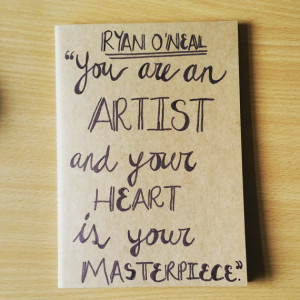 RYAN O'NEAL
"You are an
ARTIST
and your
HEART
is your
MASTERPIECE."